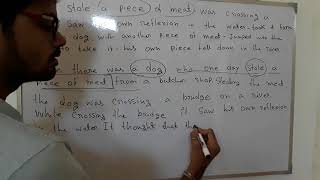 stole (a piece) of meat, was crossing a
saw his own reflexion in the water. took it
dog with another piece of meat. Jumped into the
to take it. his own piece fell down in the river
there was a dog who one day stole a
piece of meat from a butcher shop. Stealing the meat
the dog was crossing a bridge on a river
While crossing the bridge it saw his own reflexion
in the water. It thought that the